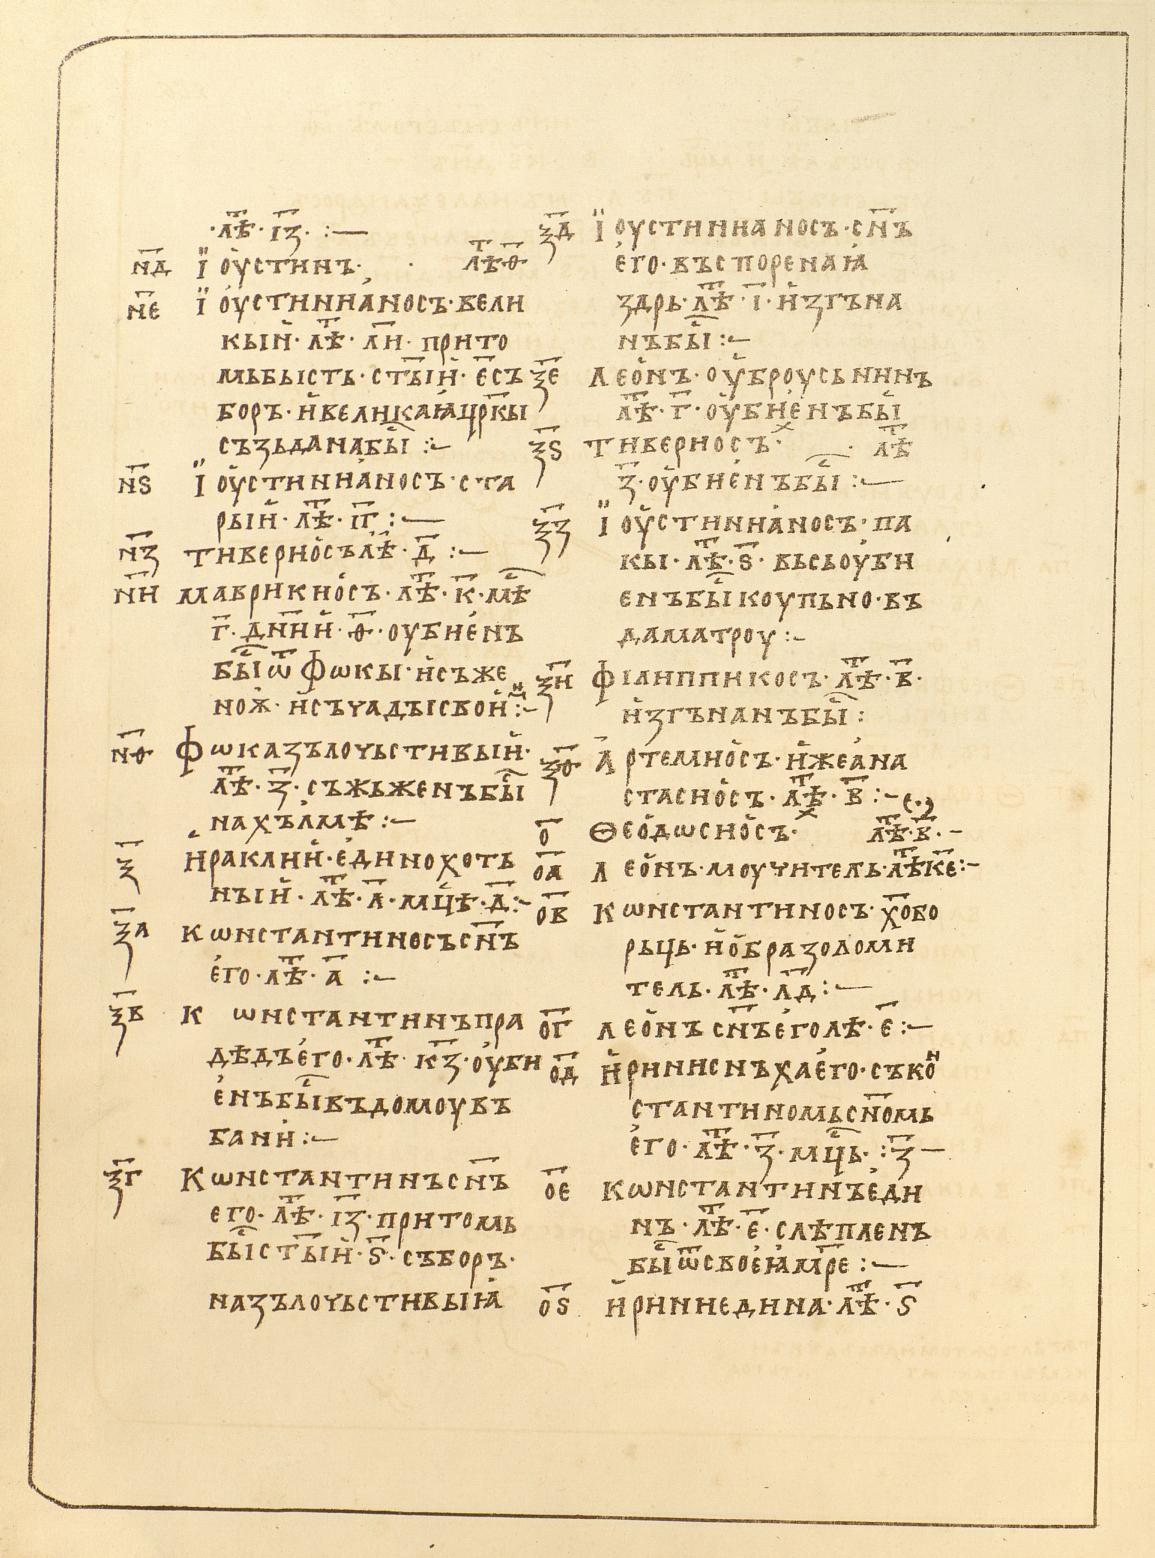 ·лѣ҃т· і҃з· :—
н҃д Їоустинъ· · лѣ҃т ѳ҃
н҃е Їоустиниа́носъ·вели
кыи̑· лѣ҃т· л҃и· прито
мьбысть·ст҃ыи̑·е҃съ
боръ·и҆великаꙗцр҃кы
съзьданабы҇ :~
н҃ѕ Їоустиниа́носъ·ста
рыи̑·лѣ҃т·і҃г :—
н҃з тивериосълѣ҃·д҃ :~
н҃и маврикиосъ·лѣ҃т·к҃·мѣ҇
г҃·дн҃ии̑·ѳ҃·оубиенъ
бы҇ѿ фωкы·и҆съже
ноѫ·и҆съчадысвои̑м :~
н҃ѳ Фωказълочьстивыи̑·
лѣ҃т·з҃·съжьженъбы҇
нахълмѣ :~
ѯ҃ Ираклии̑·единохотъ
ныи̑·лѣ҃т·л҃·мц҇ѣ·д҃:~
ѯ҃а кωнстантиносъсн҃ъ
его·лѣ҃т·а҃ :~
ѯ҃в К ωнстантинъпра
дѣдъего·лѣ҃т·к҃з·оуби
енъбы҇въдомоувъ
бани :~
ѯ҃г Кωнстантинъсн҃ъ
его·лѣ҃т·і҃з·притомь
бы҇ст҃ыи̑·ѕ҃·съборъ·
назълочьстивыѩ
ѯ҃д Їоустинианосъ·сн҃ъ
его·въспоренаꙗ
здрь·лѣ҃т·і҃·и҆згъна
нъбы҇ :~
ѯ҃е Леонъ·оуброусьнинъ
лѣ҃т·г҃·оубиенъбы҇
ѯ҃ѕ тивериосъ· · лѣ҃т
з҃·оубиенъбы҇ :—
ѯ҃з Їоустинианосъ·па
кы·лѣ҃т·ѕ҃·вьсьоуби
енъбы҇коупьно·въ
даматроу :~
ѯ҃и Філиппикосъ·лѣ҃т·в҃·
и҆згънанъбы҇ :
ѯ҃ѳ Артемиосъ·и҆жеана
стасиосъ·лѣ҃т·в҃ :~
о҃ Ѳеодωсиосъ· лѣ҃т·в҃·-
о҃а Леонъ·моучитель·лѣ҃тк҃е:~
о҃в Кωнстантиносъ·хово
рьць·и҆образоломи
тель·лѣ҃т·л҃д :—
о҃г Леонъ сн҃ъеголѣ·е҃ :~
о҃д И҆риниснъхаего·съкон
стантиномьсн҃омь
его·лѣ҃т·з҃·мц҇ь· :з҃—
о҃е Кωнстантинъеди
нъ·лѣ҃т·е҃·слѣпленъ
бы҇ѿсвоеѩмр҃е :—
о҃ѕ И҆риниедина·лѣ҃т·ѕ҃